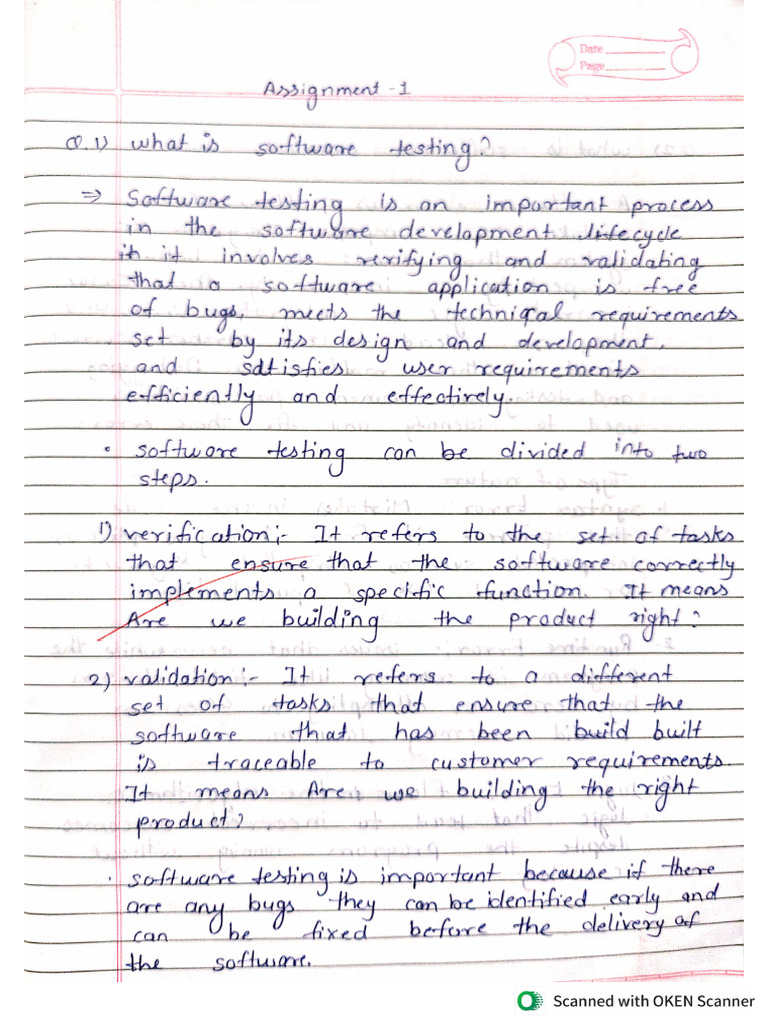 Date
Page
Assignment - 1
Q.1) what is software testing?
⇒ Software testing is an important process
in the software development lifecycle
it it involves verifying and validating
that a software application is free
of bugs, meets the technical requirements
set by its design and development,
and satisfies user requirements
efficiently and effectively.
• software testing can be divided into two
steps.
1) verification:- It refers to the set of tasks
that ensure that the software correctly
implements a specific function. It means
Are we building the product right?
2) validation:- It refers to a different
set of tasks that ensure that the
software that has been build built
is traceable to customer requirements.
It means Are we building the right
product?
• software testing is important because if there
are any bugs they can be identified early and
can be fixed before the delivery of
the software.
Scanned with OKEN Scanner